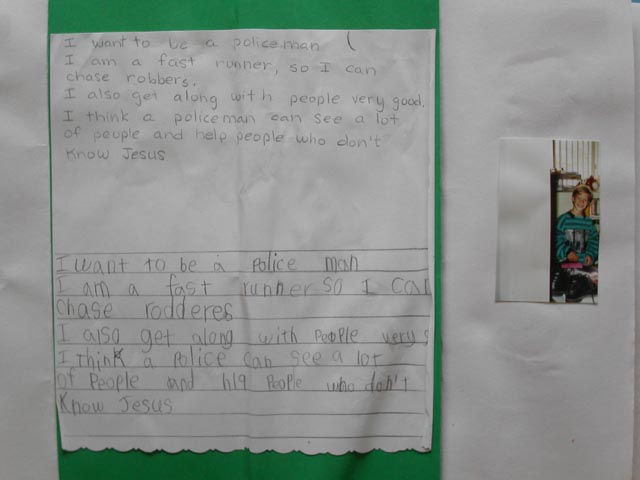 I want to be a policeman
I am a fast runner, so I can
chase robbers.
I also get along with people very good.
I think a policeman can see a lot
of people and help people who don't
Know Jesus
I want to be a Police man
I am a fast runner so I Can
Chase rodderes
I also get along with People very
I think a Police Can see a lot
of People and hlq People who don't
Know Jesus